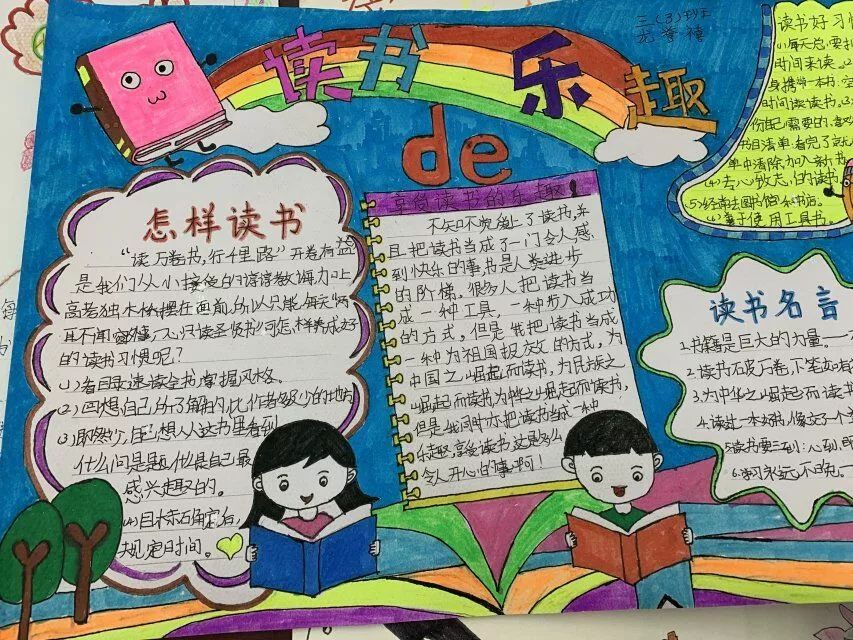 三(3)班
读书乐趣
de
怎样读书
"读万卷书,行千里路"开卷有益
是我们从小接受的谆谆教诲加上
高考独木桥摆在面前,所以只能每天两
耳不闻窗外事,一心只读圣贤书
的读书习惯呢?
(1)看目录速读全书掌握风格。
(2)回想自己所了解的比作者多少的地方
什么问是题,什么是自己最
感兴趣的。
(4)目标确定后,
规定时间。
享受读书的乐趣!
不知不觉爱上了读书,并
且把读书当成了一门令人感
到快乐的事书是人类进步
的阶梯。很多人把读书当
成一种工具,一种步入成功
的方式,但是我把读书当成
一种为祖国报效的方式,为
中国之崛起而读书,为民族之
崛起而读书,为中华之崛起而读书,
但是我同时亦把读书当成一种
乐趣,享受读书,这是多么
令人开心的事啊!
读书好习惯
小每天总要抽
时间来读。2
身携带一本书:空
时间读读书。3
份自己需要的
书目清单:看完了
单中清除加入新书
(5)经常去图书馆和书店。
(6)善于使用工具书。
读书名言
1.书籍是巨大的力量。
2.读书破万卷,下笔如有
3.为中华之崛起而读书
4.读过一本好书,像交了个
5.读书要三到:心到,眼
6.学习永远不晚。